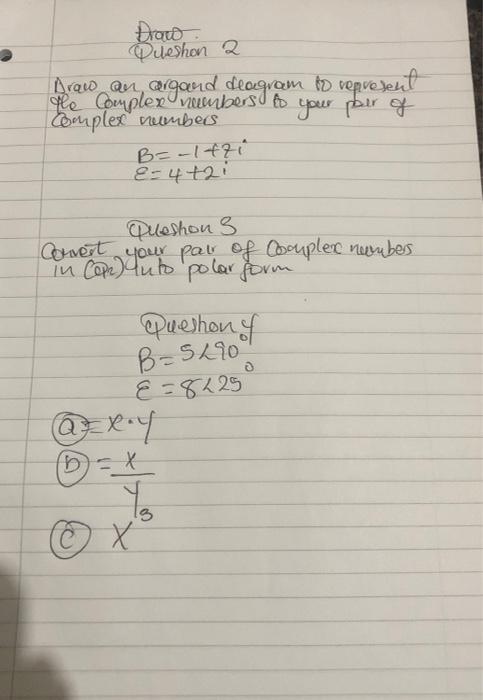 Draw.
Question 2
Draw an argand deagram to represent
the Complex numbers to your pair of
Complex numbers
B = -1+7i
E = 4+2i
Question 3
Convert your pair of Complex numbers
in (op2) into polar form
Question 4
B = 5∠90°
E = 8∠25°
(a) = x·y
(b) = x
y
(c) x³